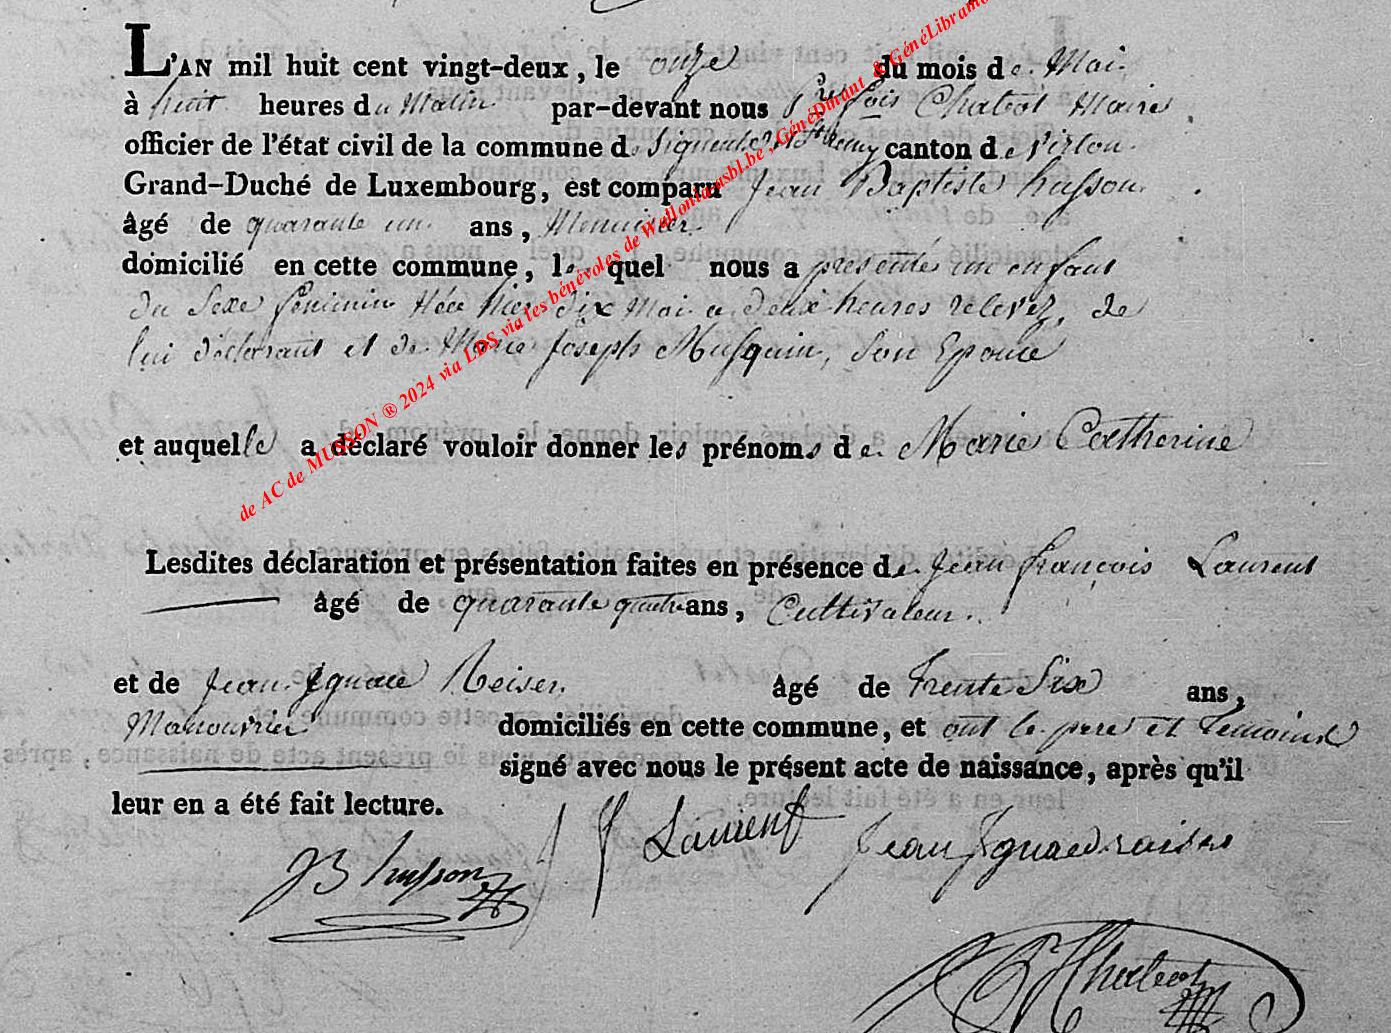 L'AN mil huit cent vingt-deux, le onze du mois de Mai
à huit heures du Matin par-devant nous Pre fois Chabot Maire
officier de l'état civil de la commune de Signeulx canton de Virton
Grand-Duché de Luxembourg, est comparu Jean Baptiste husson
âgé de quarante un ans,
domicilié en cette commune, le quel nous a présenté un enfant
du Sexe féminin Née hier dix Mai a deux heures relevez, de
lui déclarant et de Marie Joseph Musquin, Son Epouse
et auquelle a déclaré vouloir donner les prénoms de Marie Catherine
Lesdites déclaration et présentation faites en présence de Jean françois Laurent
âgé de quarante quatre ans, Cultivateur.
et de Jean Ignace Reiser âgé de trente Six ans,
Manouvrier domiciliés en cette commune, et ont le pere et temoins
signé avec nous le présent acte de naissance, après qu'il
leur en a été fait lecture.
JB husson J f Laurent Jean Ignace raiser
Chabot
de AC de MUSSON ® 2024 via LDS via les bénévoles de Wallonia asbl.be, GénéDinant & GénéLibramont